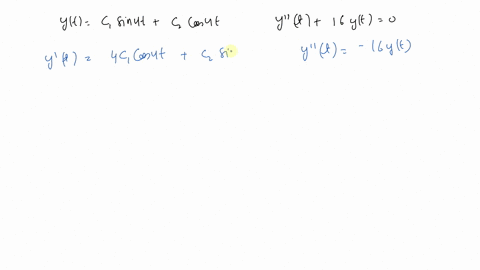 y(t) = C₁ sin4t + C₂ Cos4t
y''(t) + 16 y(t) = 0
y'(t) = 4C₁ Cos4t + C₂ si
y''(t) = -16 y(t)